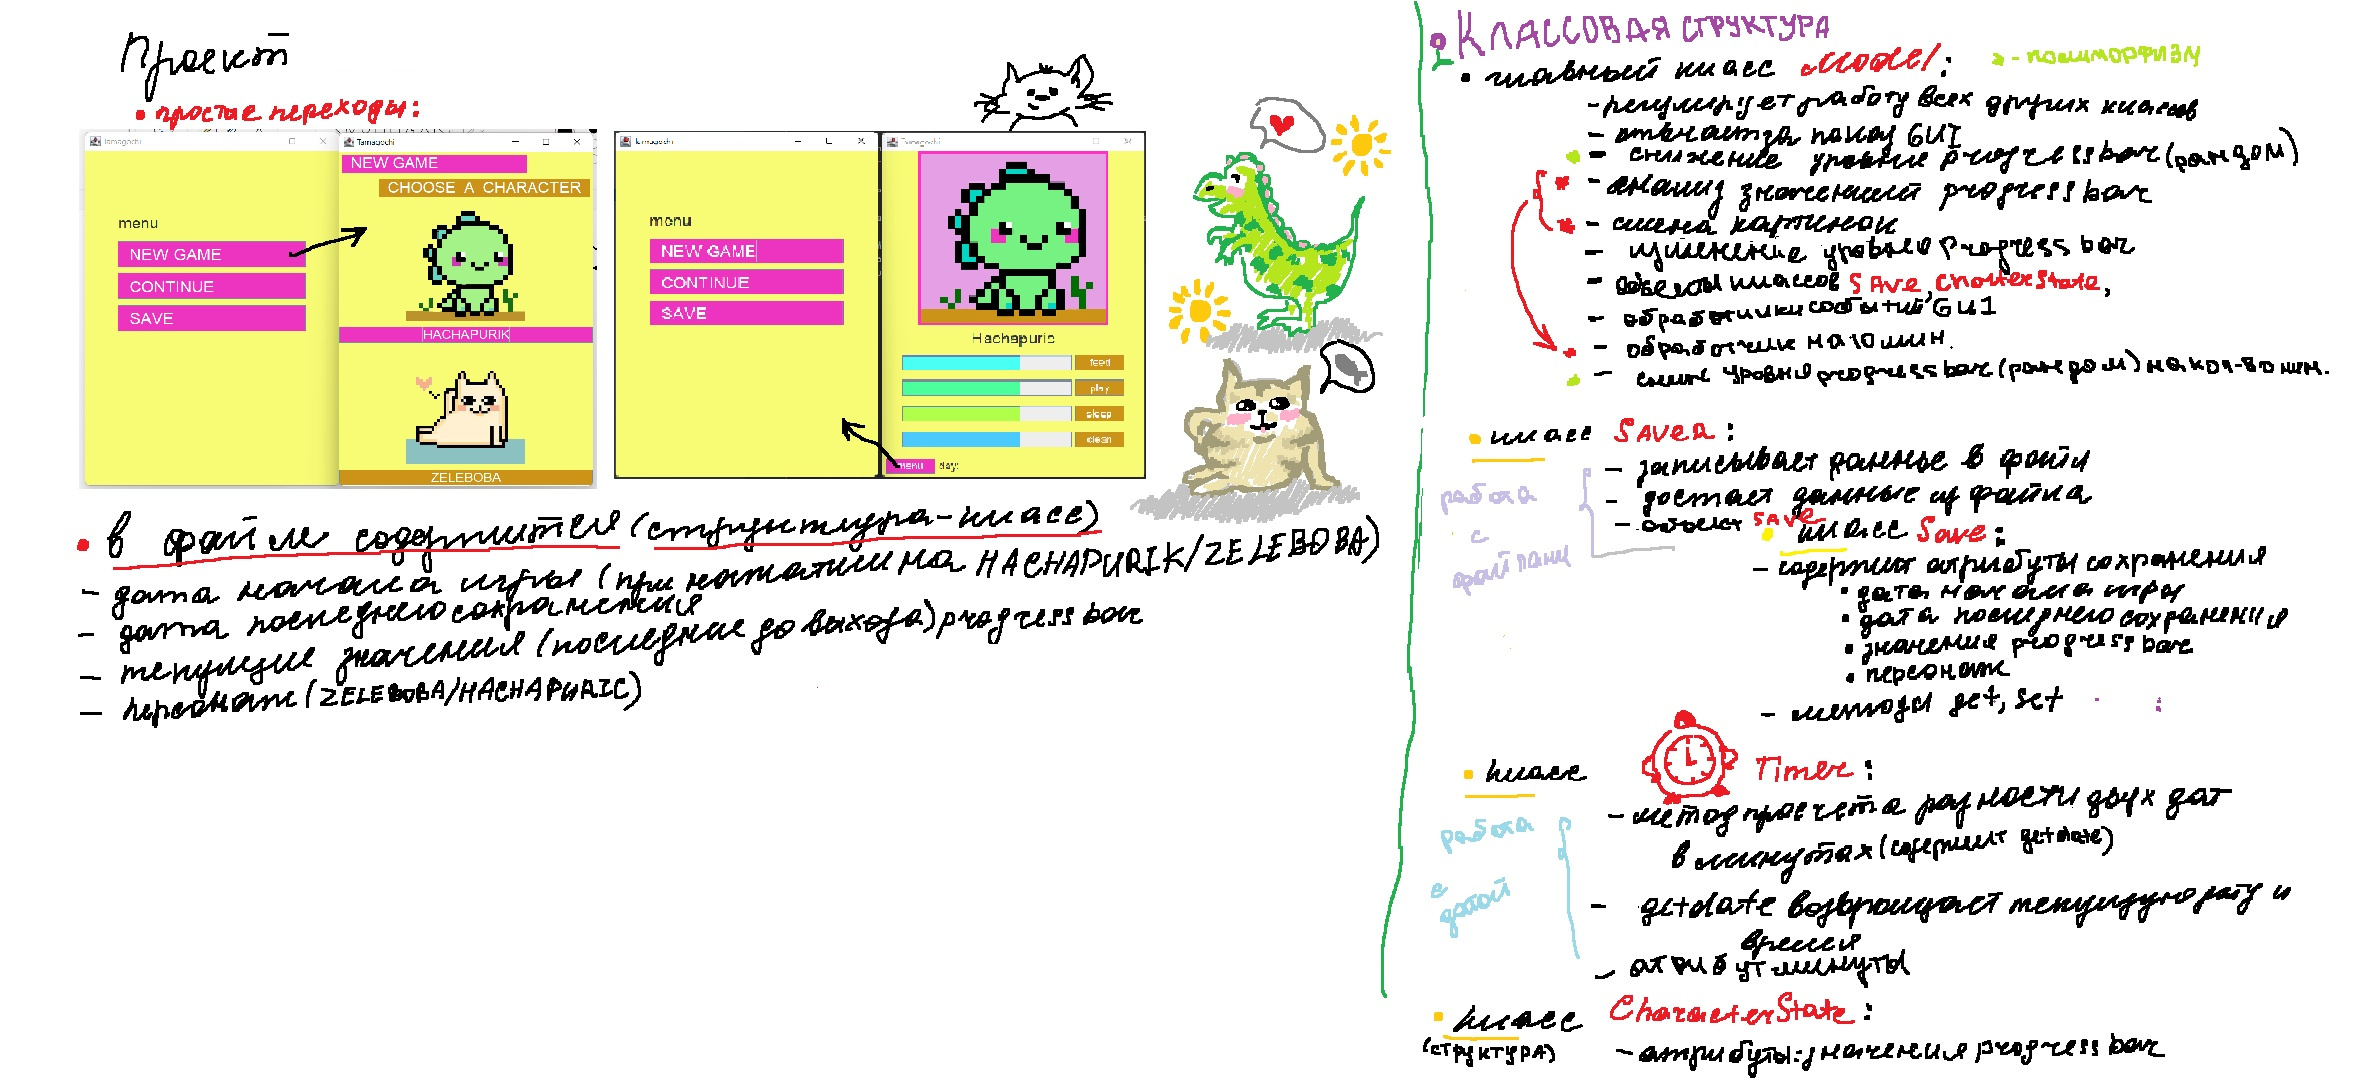 Проект
• простые переходы:
Tamagochi
menu
NEW GAME
CONTINUE
SAVE
Tamagochi
NEW GAME
CHOOSE A CHARACTER
HACHAPURIK
ZELEBOBA
Tamagochi
menu
NEW GAME
CONTINUE
SAVE
Tamagochi
Hachapuric
feed
play
sleep
clean
menu day:
• в файле содержится (структура-класс)
- дата начала игры (при нажатии на HACHAPURIK/ZELEBOBA)
- дата последнего сохранения
- текущие значения (последние до выхода) progress bar
- персонаж (ZELEBOBA/HACHAPURIC)
КЛАССОВАЯ СТРУКТУРА
- полиморфизм
• главный класс Model:
- регулирует работу всех других классов
- отвечает за показ GUI
- снижение уровня progress bar (рандом)
- анализ значений progress bar
- смена картинок
- изменение уровней progress bar
- объекты классов SAVE,
- обработчики событий GUI
- обработчик на 10 мин.
- сниж уровня progress bar (рандом) на кол-во мин.
• класс Saver:
- записывает данные в файл
- достает данные из файла
- объект SAVE
работа
с
файлами
• класс Save:
- содержит атрибуты сохранения
• дата начала игры
• дата последнего сохранения
• значения progress bar
• персонаж
- методы get, set
• класс Timer:
- метод просчета разности двух дат
в минутах (содержит getdate)
- getdate возвращает текущую дату и
время
- атрибут минуты
работа
с
датой
• класс CharacterState:
(СТРУКТУРА)
- атрибуты: значения progress bar